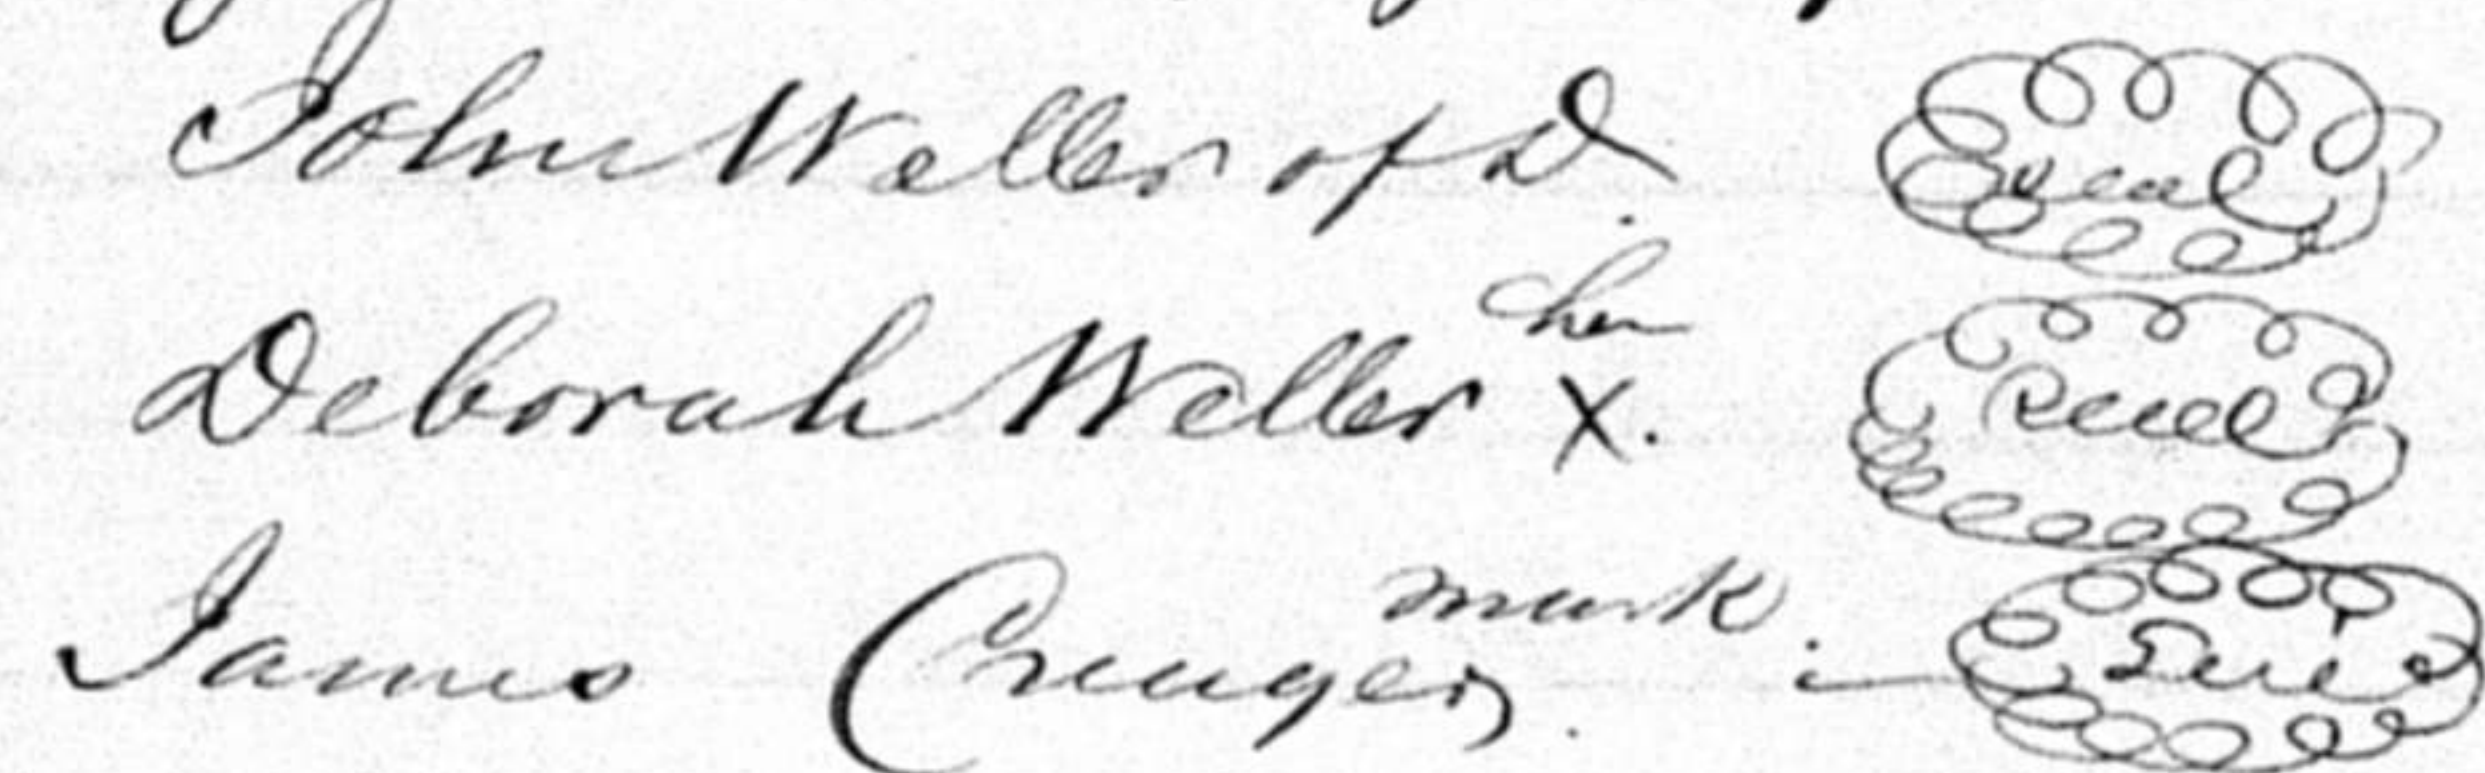 John Weller of D. Seal
her
Deborah Weller X. Seal
mark.
James Cruger. Seal